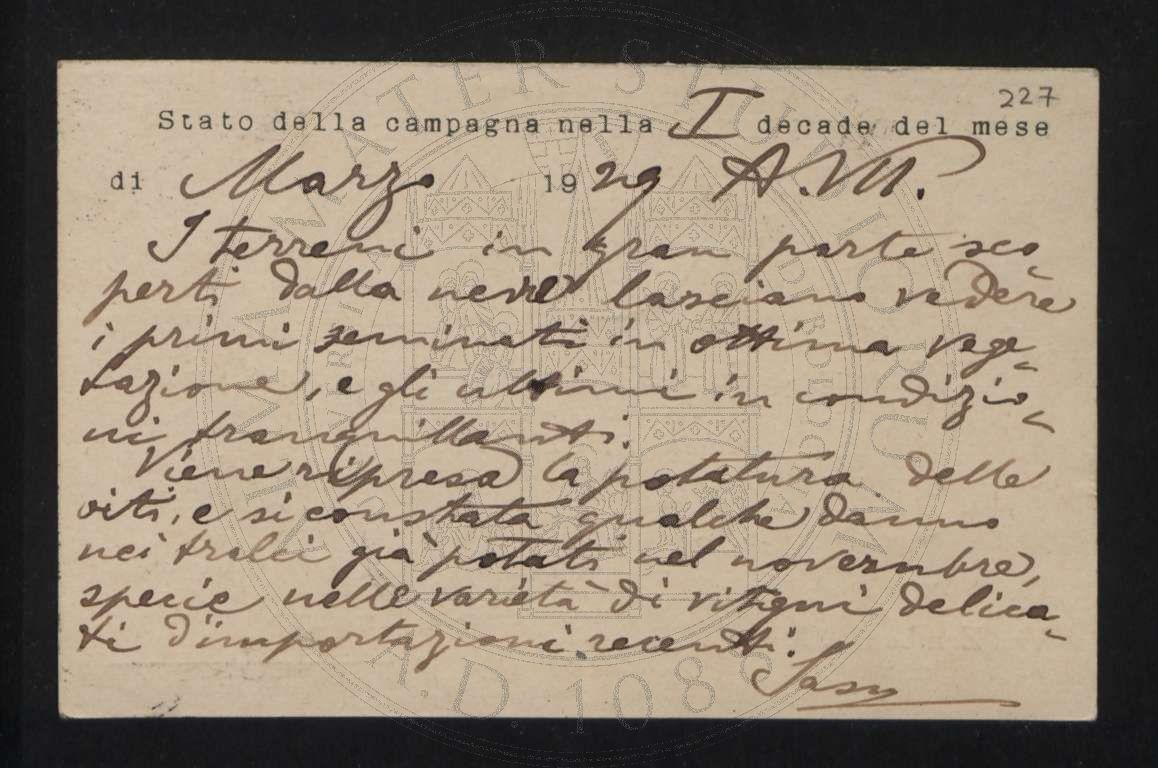 227
Stato della campagna nella I decade del mese
di Marzo 1929 A.VII.
I terreni in gran parte sco
perti dalla neve lasciano vedere
i primi seminati in ottima vege-
tazione, e gli ultimi in condizio-
ni tranquillanti.
Viene ripresa la potatura delle
viti, e si constata qualche danno
nei tralci già potati nel novembre,
specie nelle varietà di vitigni delica-
ti d'importazioni recenti.
ALMAE MATER STUDIORUM
A.D. 1088